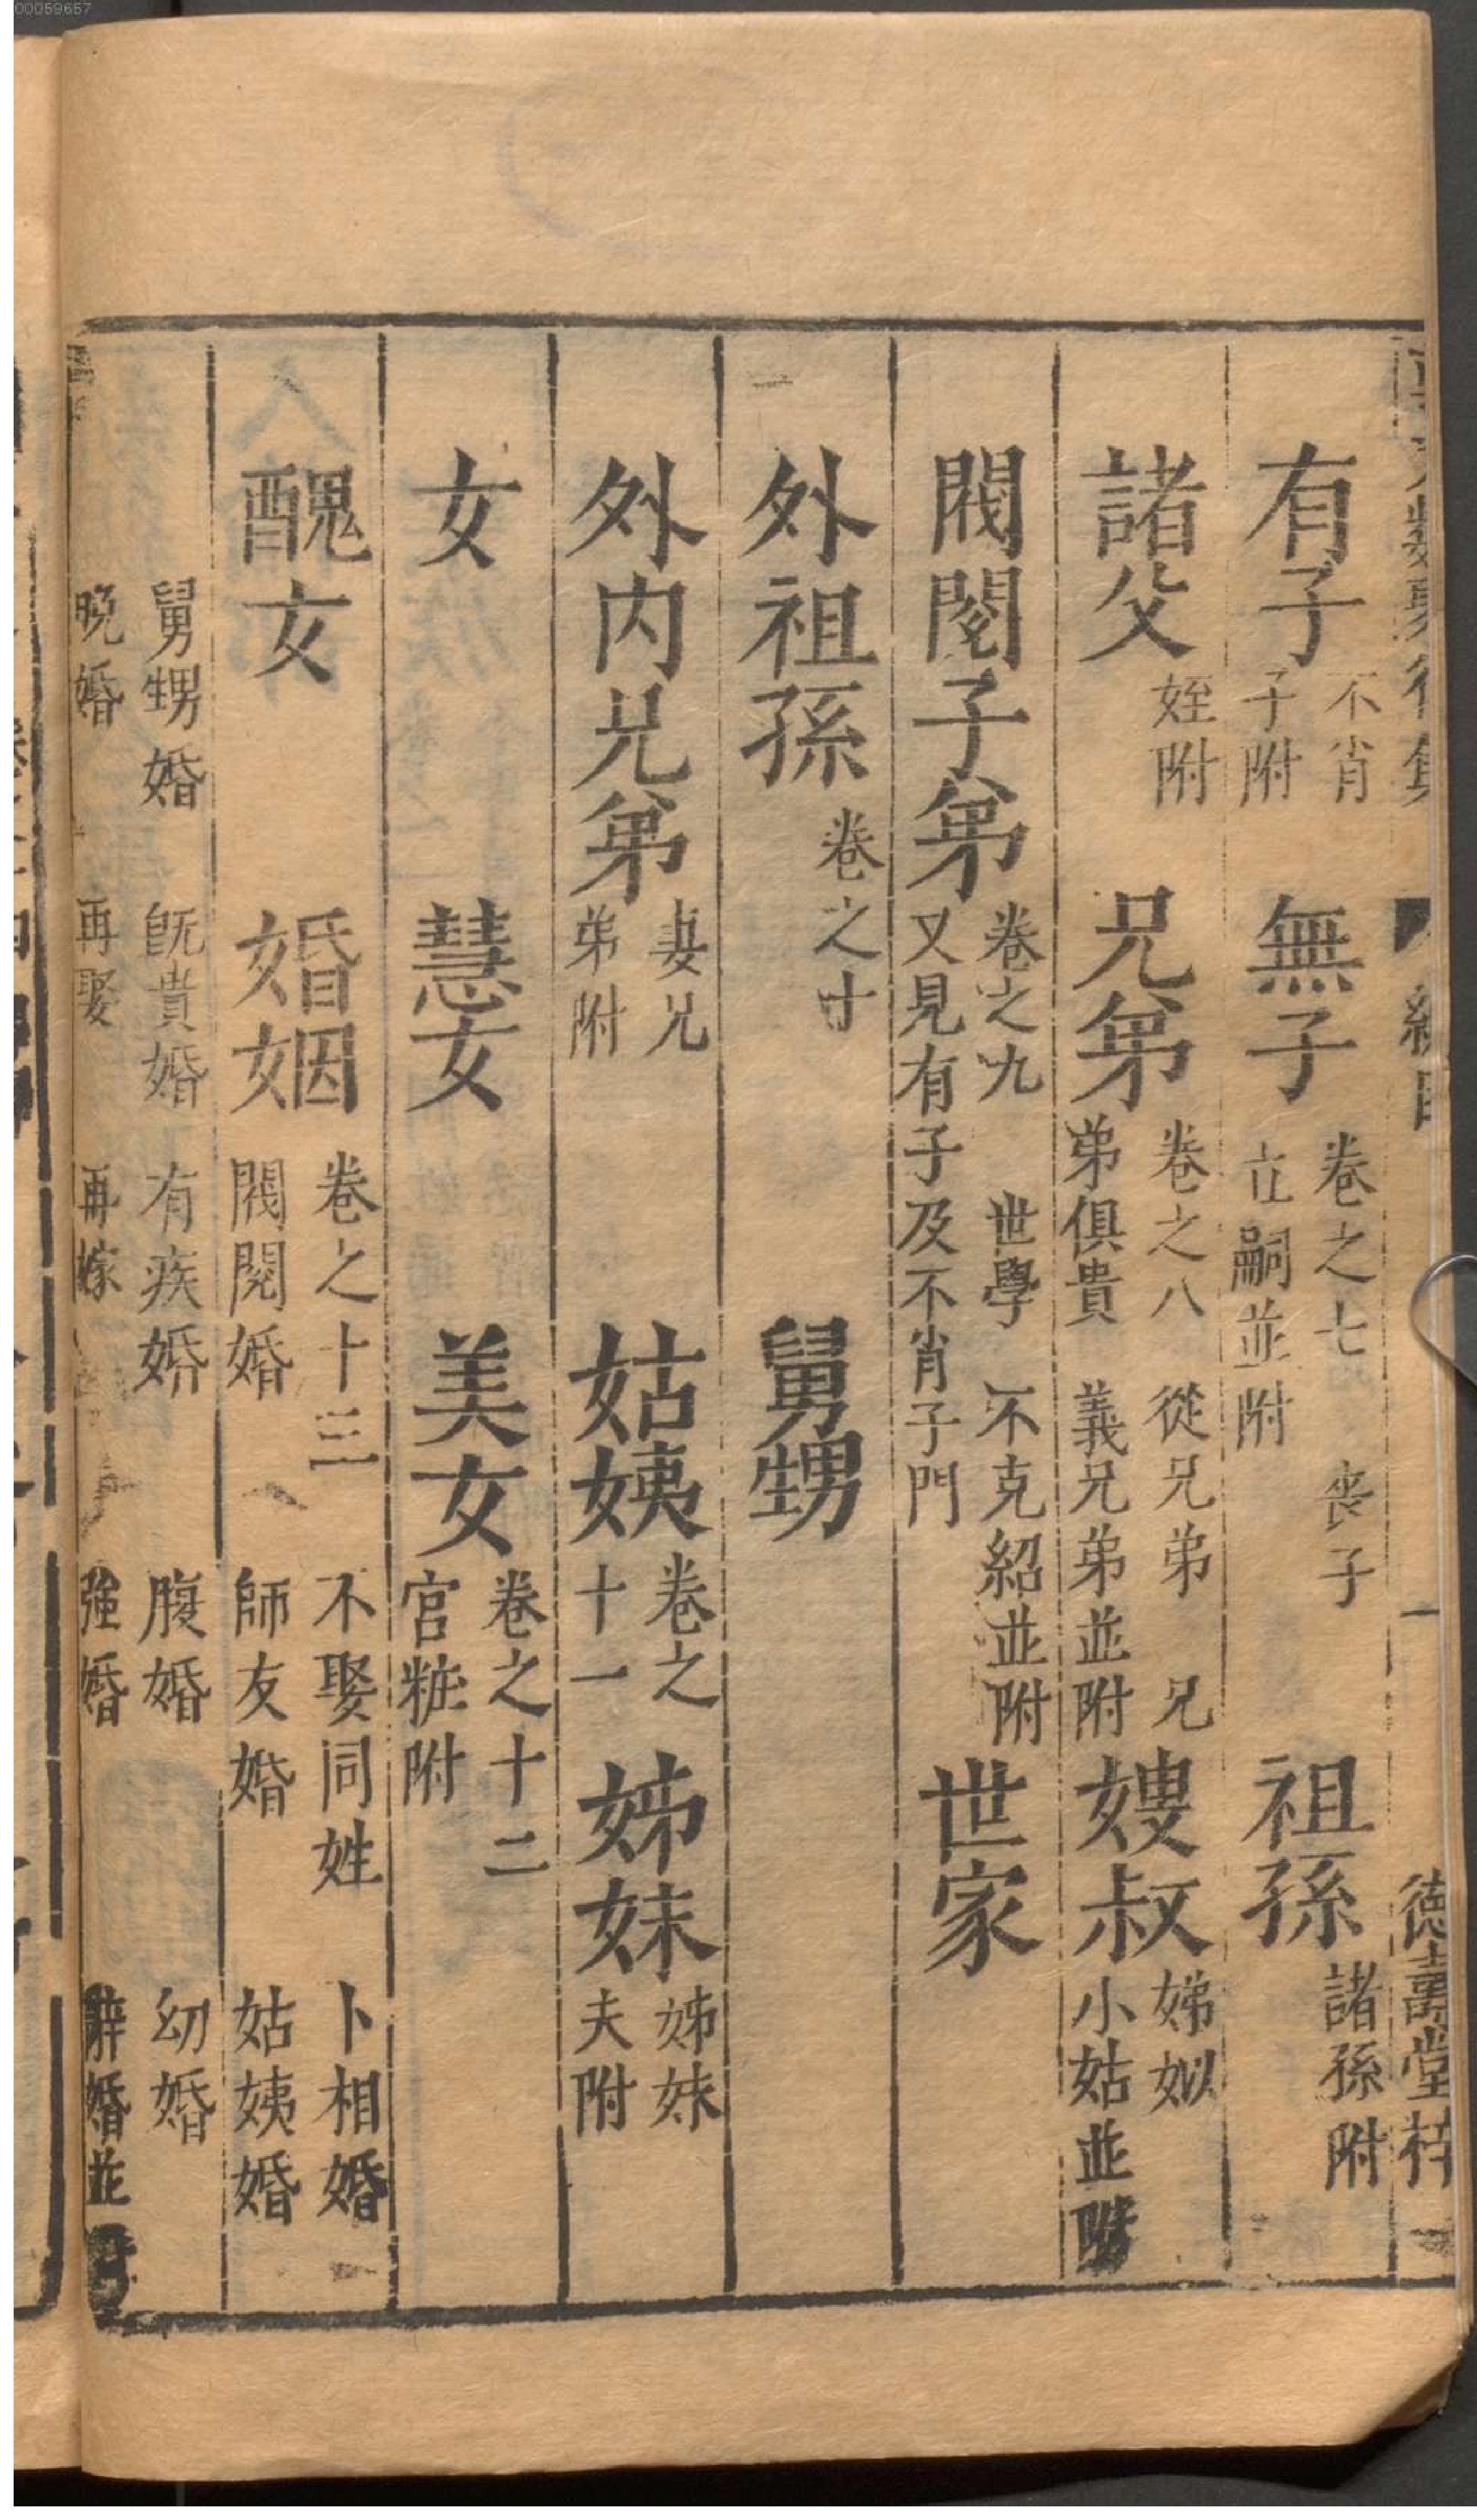 00059657
有子 不肖子附 無子 卷之七 喪子 立嗣並附 祖孫 諸孫附
諸父 姪附 兄弟 卷之八 從兄弟 兄弟俱貴 義兄弟並附 嫂叔 娣姒 小姑並附
閥閱子弟 卷之九 世學 不克紹並附 又見有子及不肖子門 世家
外祖孫 卷之十 舅甥
外内兄弟 妻兄弟附 姑姨 卷之十一 姊妹 姊妹夫附
女 慧女 美女 卷之十二 宮粧附
醜女 婚姻 卷之十三 不娶同姓 卜相婚 閥閱婚 師友婚 姑姨婚
舅甥婚 既貴婚 有疾婚 腹婚 幼婚
晚婚 再娶 再嫁 強婚 辭婚並
德壽堂梓